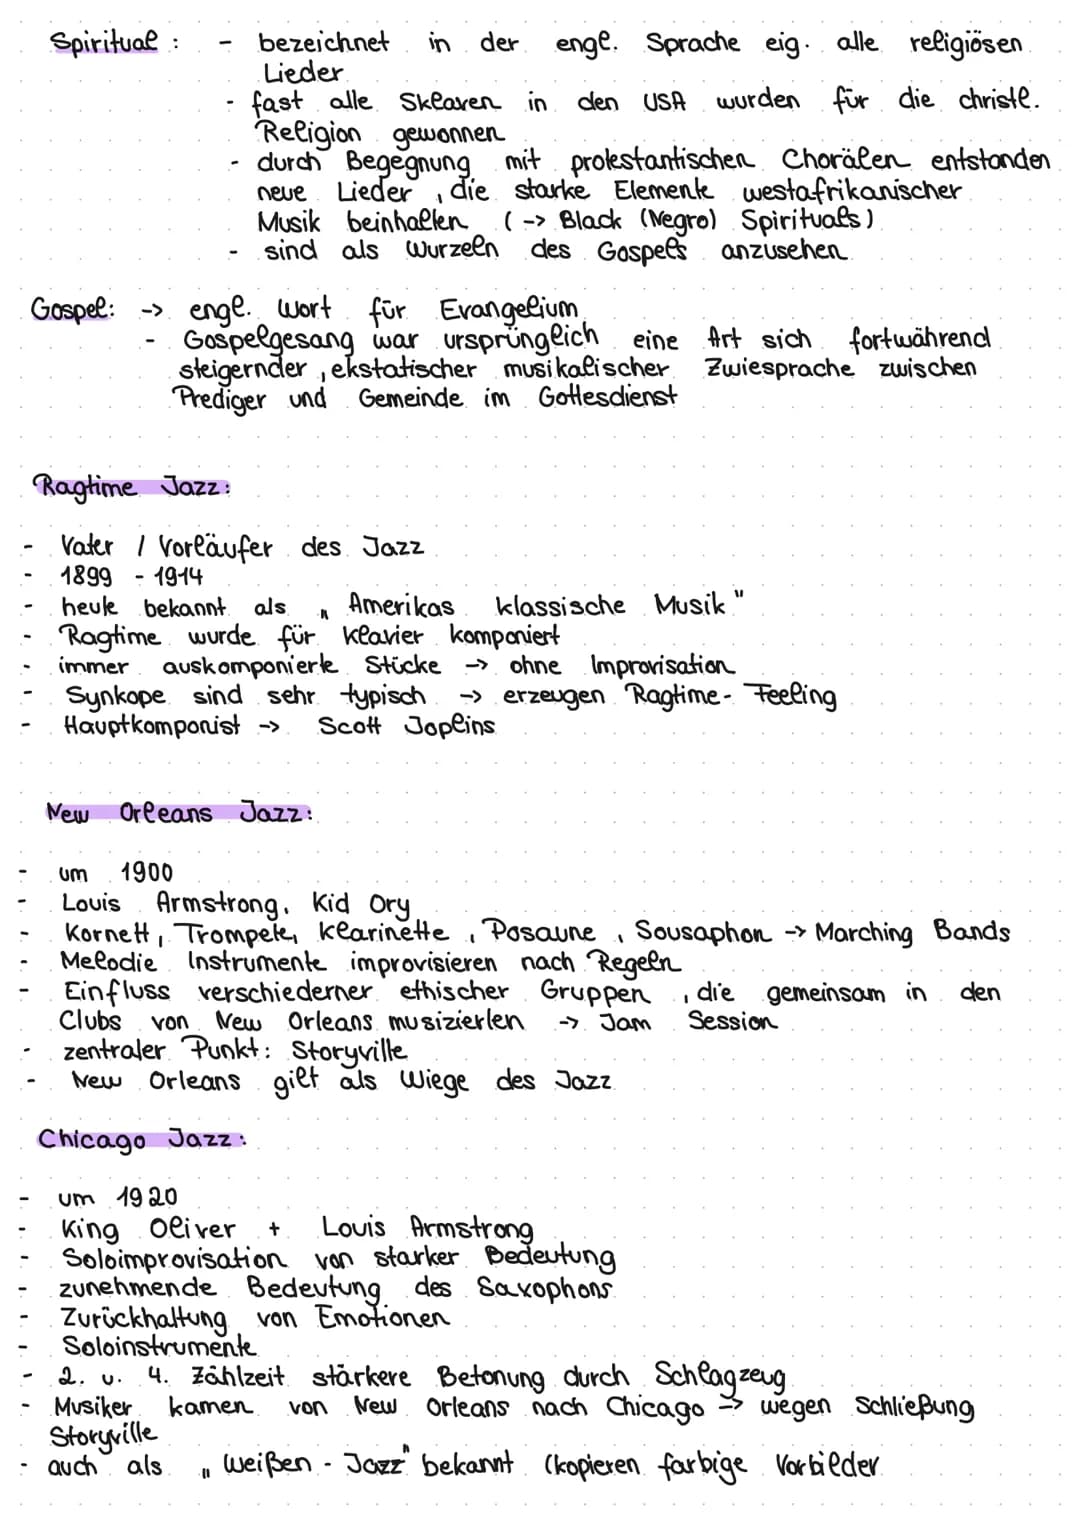 Spiritual : - bezeichnet in der engl. Sprache eig. alle religiösen
Lieder
- fast alle Sklaven in den USA wurden für die christl.
Religion gewonnen
- durch Begegnung mit protestantischen Chorälen entstanden
neue Lieder, die starke Elemente westafrikanischer
Musik beinhalten (-> Black (Negro) Spirituals)
- sind als Wurzeln des Gospels anzusehen
Gospel: -> engl. Wort für Evangelium
- Gospelgesang war ursprünglich eine Art sich fortwährend
steigernder, ekstatischer musikalischer Zwiesprache zwischen
Prediger und Gemeinde im Gottesdienst
Ragtime Jazz:
- Vater / Vorläufer des Jazz
- 1899 - 1914
- heute bekannt als „Amerikas klassische Musik"
- Ragtime wurde für Klavier komponiert
- immer auskomponierte Stücke -> ohne Improvisation
- Synkope sind sehr typisch -> erzeugen Ragtime-Feeling
- Hauptkomponist -> Scott Joplins
New Orleans Jazz:
- um 1900
- Louis Armstrong, Kid Ory
- Kornett, Trompete, Klarinette, Posaune, Sousaphon -> Marching Bands
- Melodie Instrumente improvisieren nach Regeln
- Einfluss verschiederner ethischer Gruppen, die gemeinsam in den
Clubs von New Orleans musizierten -> Jam Session
- zentraler Punkt: Storyville
- New Orleans gilt als Wiege des Jazz
Chicago Jazz:
- um 1920
- King Oliver + Louis Armstrong
- Soloimprovisation von starker Bedeutung
- zunehmende Bedeutung des Saxophons
- Zurückhaltung von Emotionen
- Soloinstrumente
- 2. u. 4. Zählzeit stärkere Betonung durch Schlagzeug
- Musiker kamen von New Orleans nach Chicago -> wegen Schließung
Storyville
- auch als „Weißen - Jazz" bekannt (kopieren farbige Vorbilder